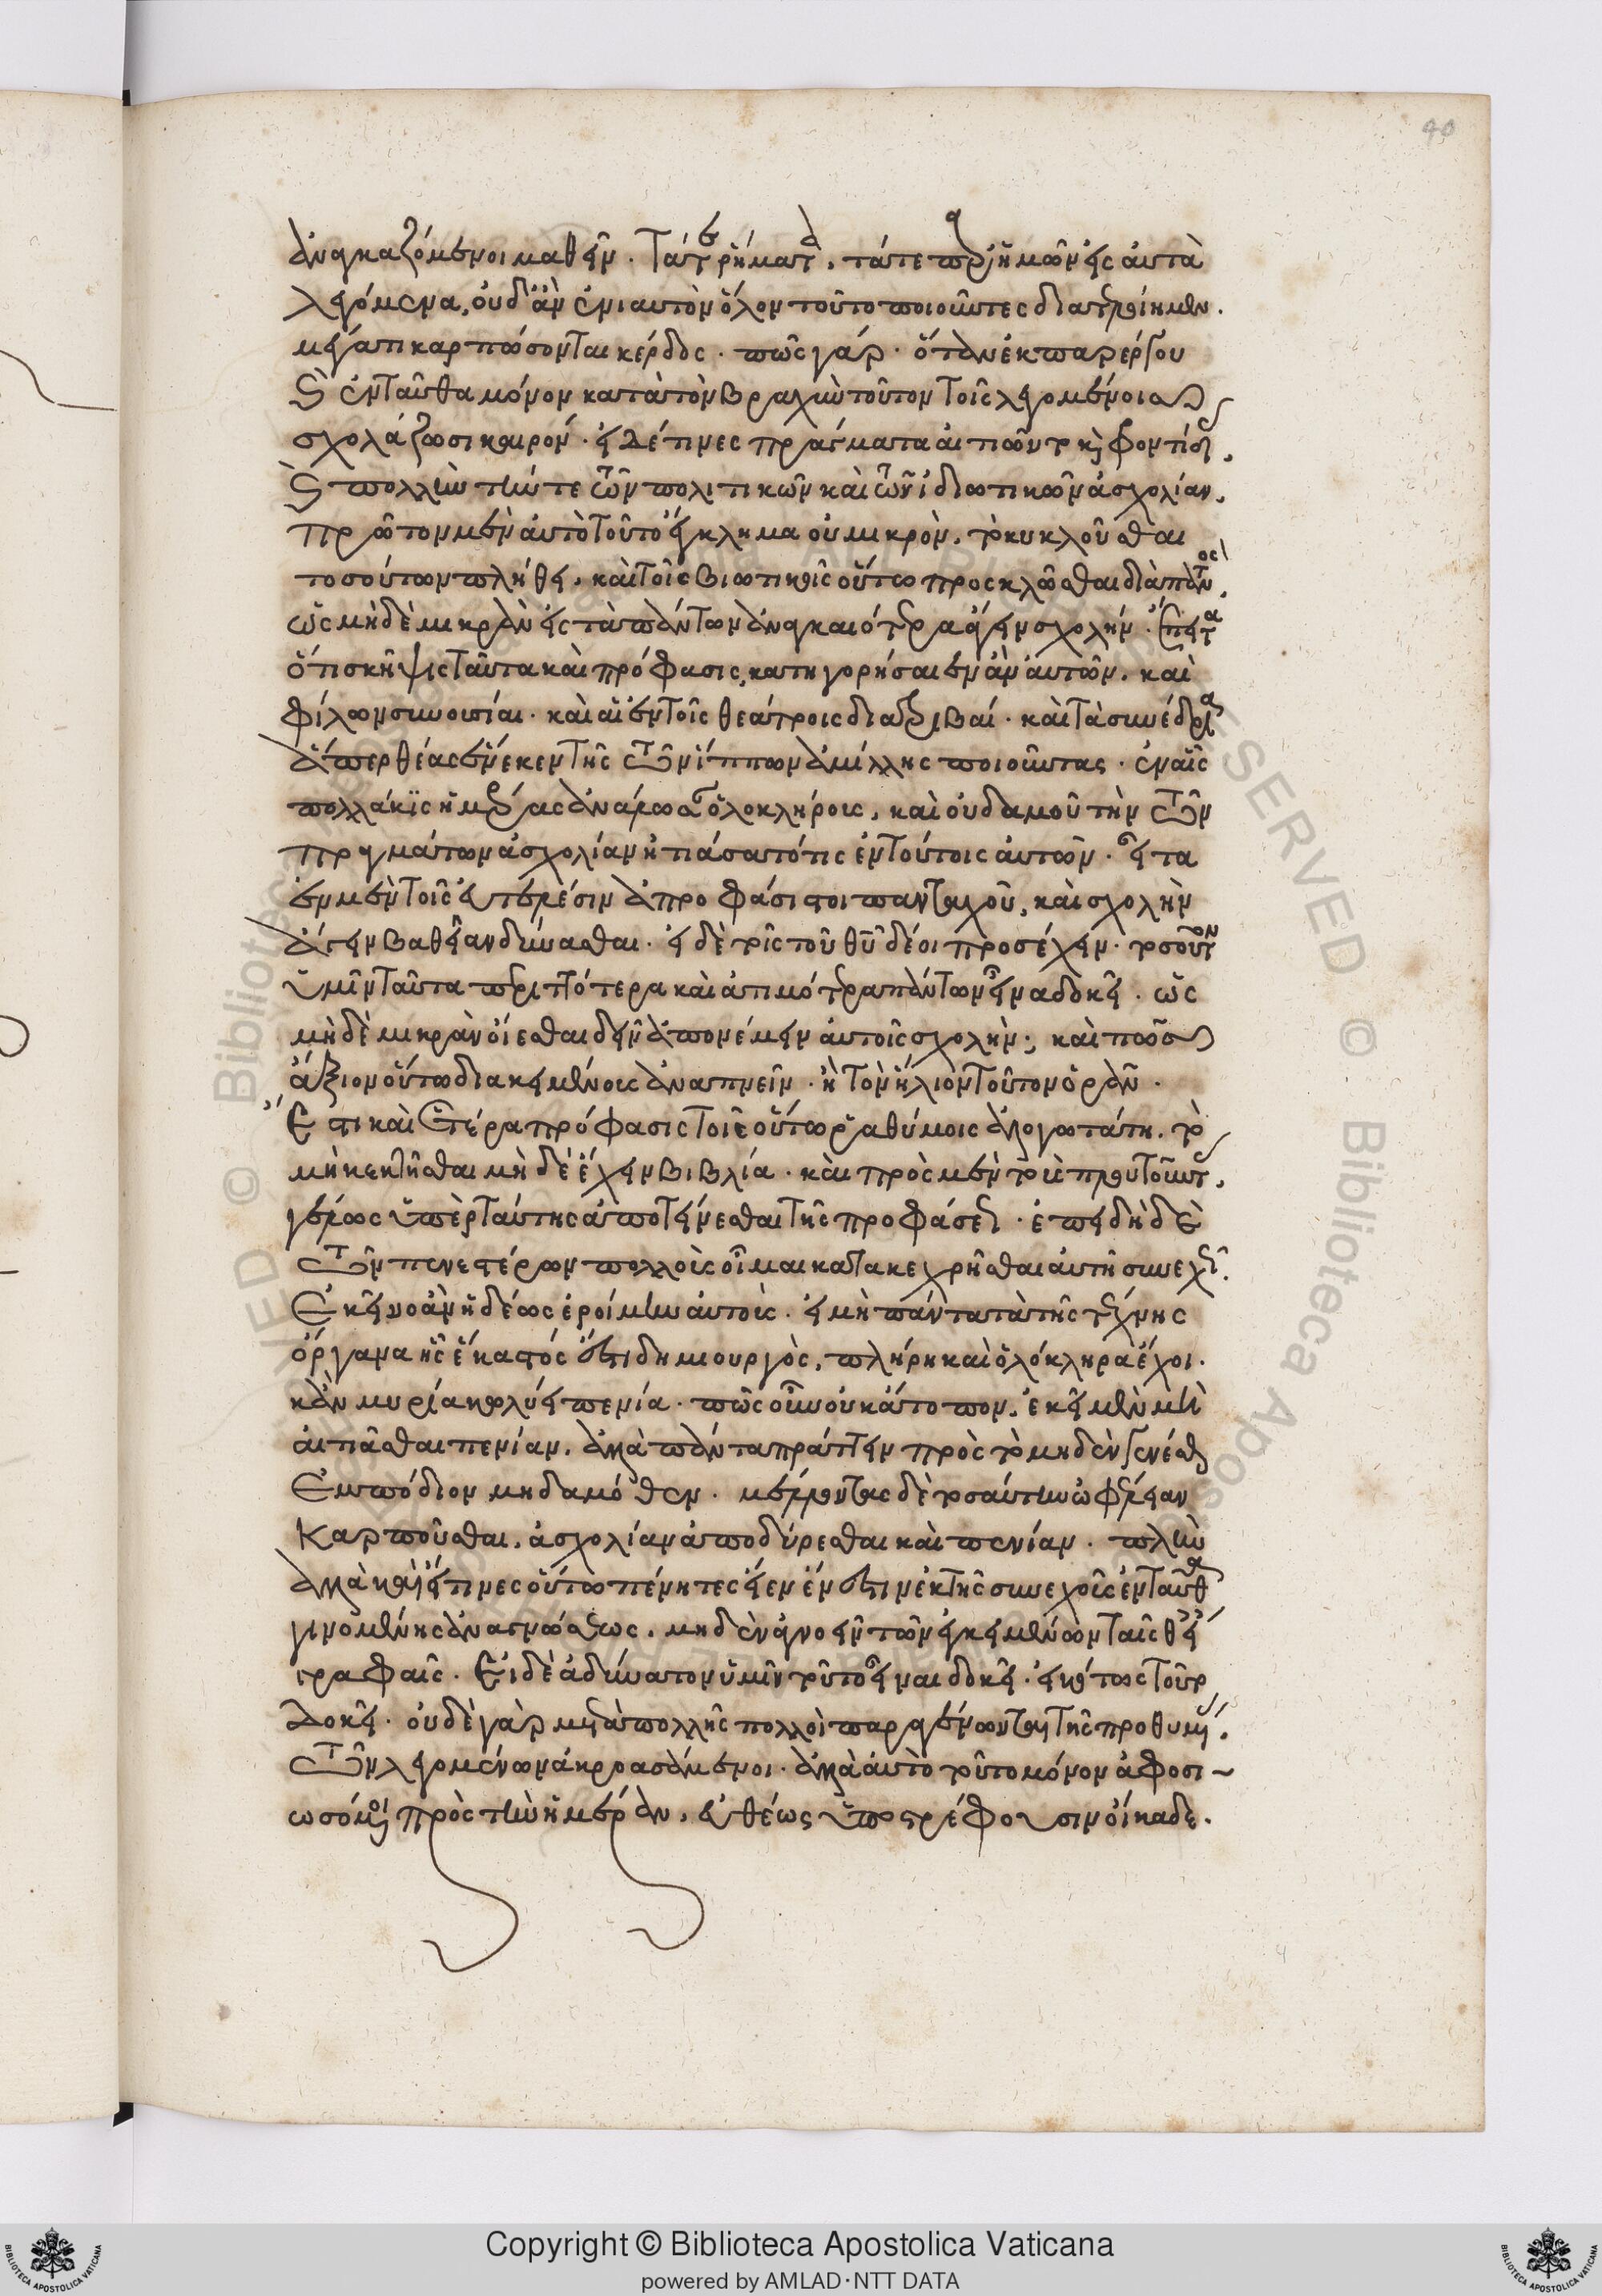 40
ἀναγκαζόμενοι μαθεῖν. ταῦτα τὰ ῥήματα, τά τε παρ' ἡμῶν εἰς αὐτὰ
λεγόμενα, οὐδ' ἂν ἐνιαυτὸν ὅλον τοῦτο ποιοῦντες διατρίψωμεν.
μέγα τι καρπώσονται κέρδος. πῶς γάρ. ὅταν ἐκ παρέργου
καὶ ἐνταῦθα μόνον κατὰ τὸν βραχὺν τοῦτον τοῖς λεγομένοις
σχολάζωσι καιρόν. εἰ δέ τινες πράγματα αἰτιῶντο καὶ φροντίδας,
καὶ πολλὴν τήν τε τῶν πολιτικῶν καὶ τῶν ἰδιωτικῶν ἀσχολίαν,
πρῶτον μὲν αὐτὸ τοῦτο ἔγκλημα οὐ μικρὸν, τὸ κυκλοῦσθαι
τοσούτων πλήθει, καὶ τοῖς βιωτικοῖς οὕτω προσηλῶσθαι διὰ παντός,
ὡς μηδὲ μικρὰν εἰς τὰ πάντων ἀναγκαιότερα ἄγειν σχολήν. ἔπειτα
ὅτι σκῆψις ταῦτα καὶ πρόφασις, κατηγορήσαιεν ἂν αὐτῶν. καὶ
φίλων συνουσίαι. καὶ αἱ ἐν τοῖς θεάτροις διατριβαί. καὶ τὰ συνέδρια
ἅπερ θέας ἕνεκεν τῆς τῶν ἵππων ἁμίλλης ποιοῦνται. ἐν αἷς
πολλάκις ἡμέρας ἀναλίσκουσιν ὁλοκλήρους, καὶ οὐδαμοῦ τὴν τῶν
πραγμάτων ἀσχολίαν ᾐτιάσατό τις ἐν τούτοις αὐτῶν. εἶτα
ἐν μὲν τοῖς εὐτελέσιν ἀπροφάσιστοι πανταχοῦ, καὶ σχολὴν
ἄγειν βαθεῖαν δύνασθαι. εἰ δὲ τοῖς τοῦ θεοῦ δέοι προσέχειν. τοσοῦτον
ὑμῖν ταῦτα περιττότερα καὶ ἀτιμότερα πάντων εἶναι δοκεῖ. ὡς
μηδὲ μικρὰν οἴεσθαι δεῖν ἀπονέμειν αὐτοῖς σχολὴν; καὶ πῶς
ἄξιον οὕτω διακειμένους ἀναπνεῖν. ἢ τὸν ἥλιον τοῦτον ὁρᾶν.
Ἔστι καὶ ἑτέρα πρόφασις τοῖς οὕτω ῥᾳθύμοις ἀλογωτάτη. τὸ
μὴ κεκτῆσθαι μηδὲ ἔχειν βιβλία. καὶ πρὸς μὲν τοὺς πλουτοῦντας,
γέλως ὑπὲρ ταύτης ἀποτείνεσθαι τῆς προφάσεως. ἐπειδὴ δὲ
τῶν πενεστέρων πολλοὺς οἶμαι κατακεχρῆσθαι αὐτῇ συνεχῶς.
Ἐκεῖνο ἂν ἡδέως ἐροίμην αὐτούς. εἰ μὴ πάντα τὰ τῆς τέχνης
ὄργανα ἧς ἕκαστός ἐστι δημιουργὸς, πλήρη καὶ ὁλόκληρα ἔχοι.
κἂν μυρία κωλύει πενία. πῶς οὖν οὐκ ἄτοπον. ἐκεῖ μὲν μὴ
αἰτιᾶσθαι πενίαν. ἀλλὰ πάντα πράττειν πρὸς τὸ μηδὲν γενέσθαι
Ἐμπόδιον μηδαμόθεν. μέλλοντας δὲ τοσαύτην ὠφέλειαν
καρποῦσθαι, ἀσχολίαν ἀποδύρεσθαι καὶ πενίαν. πλὴν
ἀλλὰ καὶ εἴ τινες οὕτω πένητες εἶεν ἔνεστιν ἐκ τῆς συνεχοῦς ἐνταῦθα
γινομένης ἀναγνώσεως, μηδὲν ἀγνοεῖν τῶν ἐγκειμένων ταῖς θείαις
γραφαῖς. Εἰ δὲ ἀδύνατον ὑμῖν τοῦτο εἶναι δοκεῖ. εἰκότως τοῦτο
δοκεῖ. οὐδὲ γὰρ μετὰ πολλῆς πολλοὶ παραγένωνται τῆς προθυμίας.
τῶν λεγομένων ἀκροασάμενοι. ἀλλὰ αὐτὸ τοῦτο μόνον ἀφοσι-
ωσόμενοι πρὸς τὴν ἡμέραν, εὐθέως ὑποστρέφουσιν οἴκαδε.
Copyright © Biblioteca Apostolica Vaticana
powered by AMLAD·NTT DATA